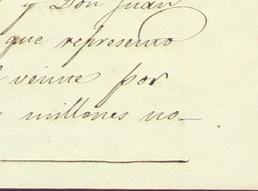 y Don Juan
que represento
veinte por
millones no-